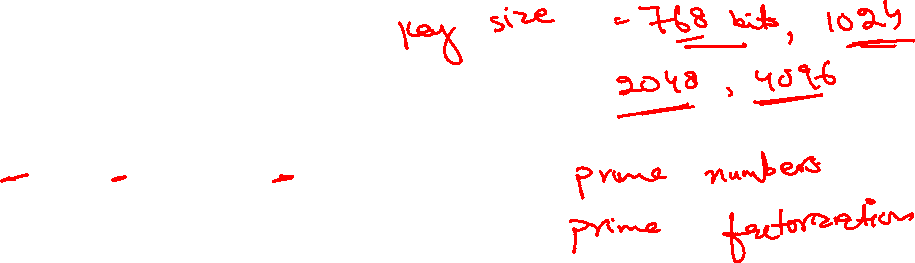 Key size = 768 bits, 1024
2048, 4096
prime numbers
prime factorization